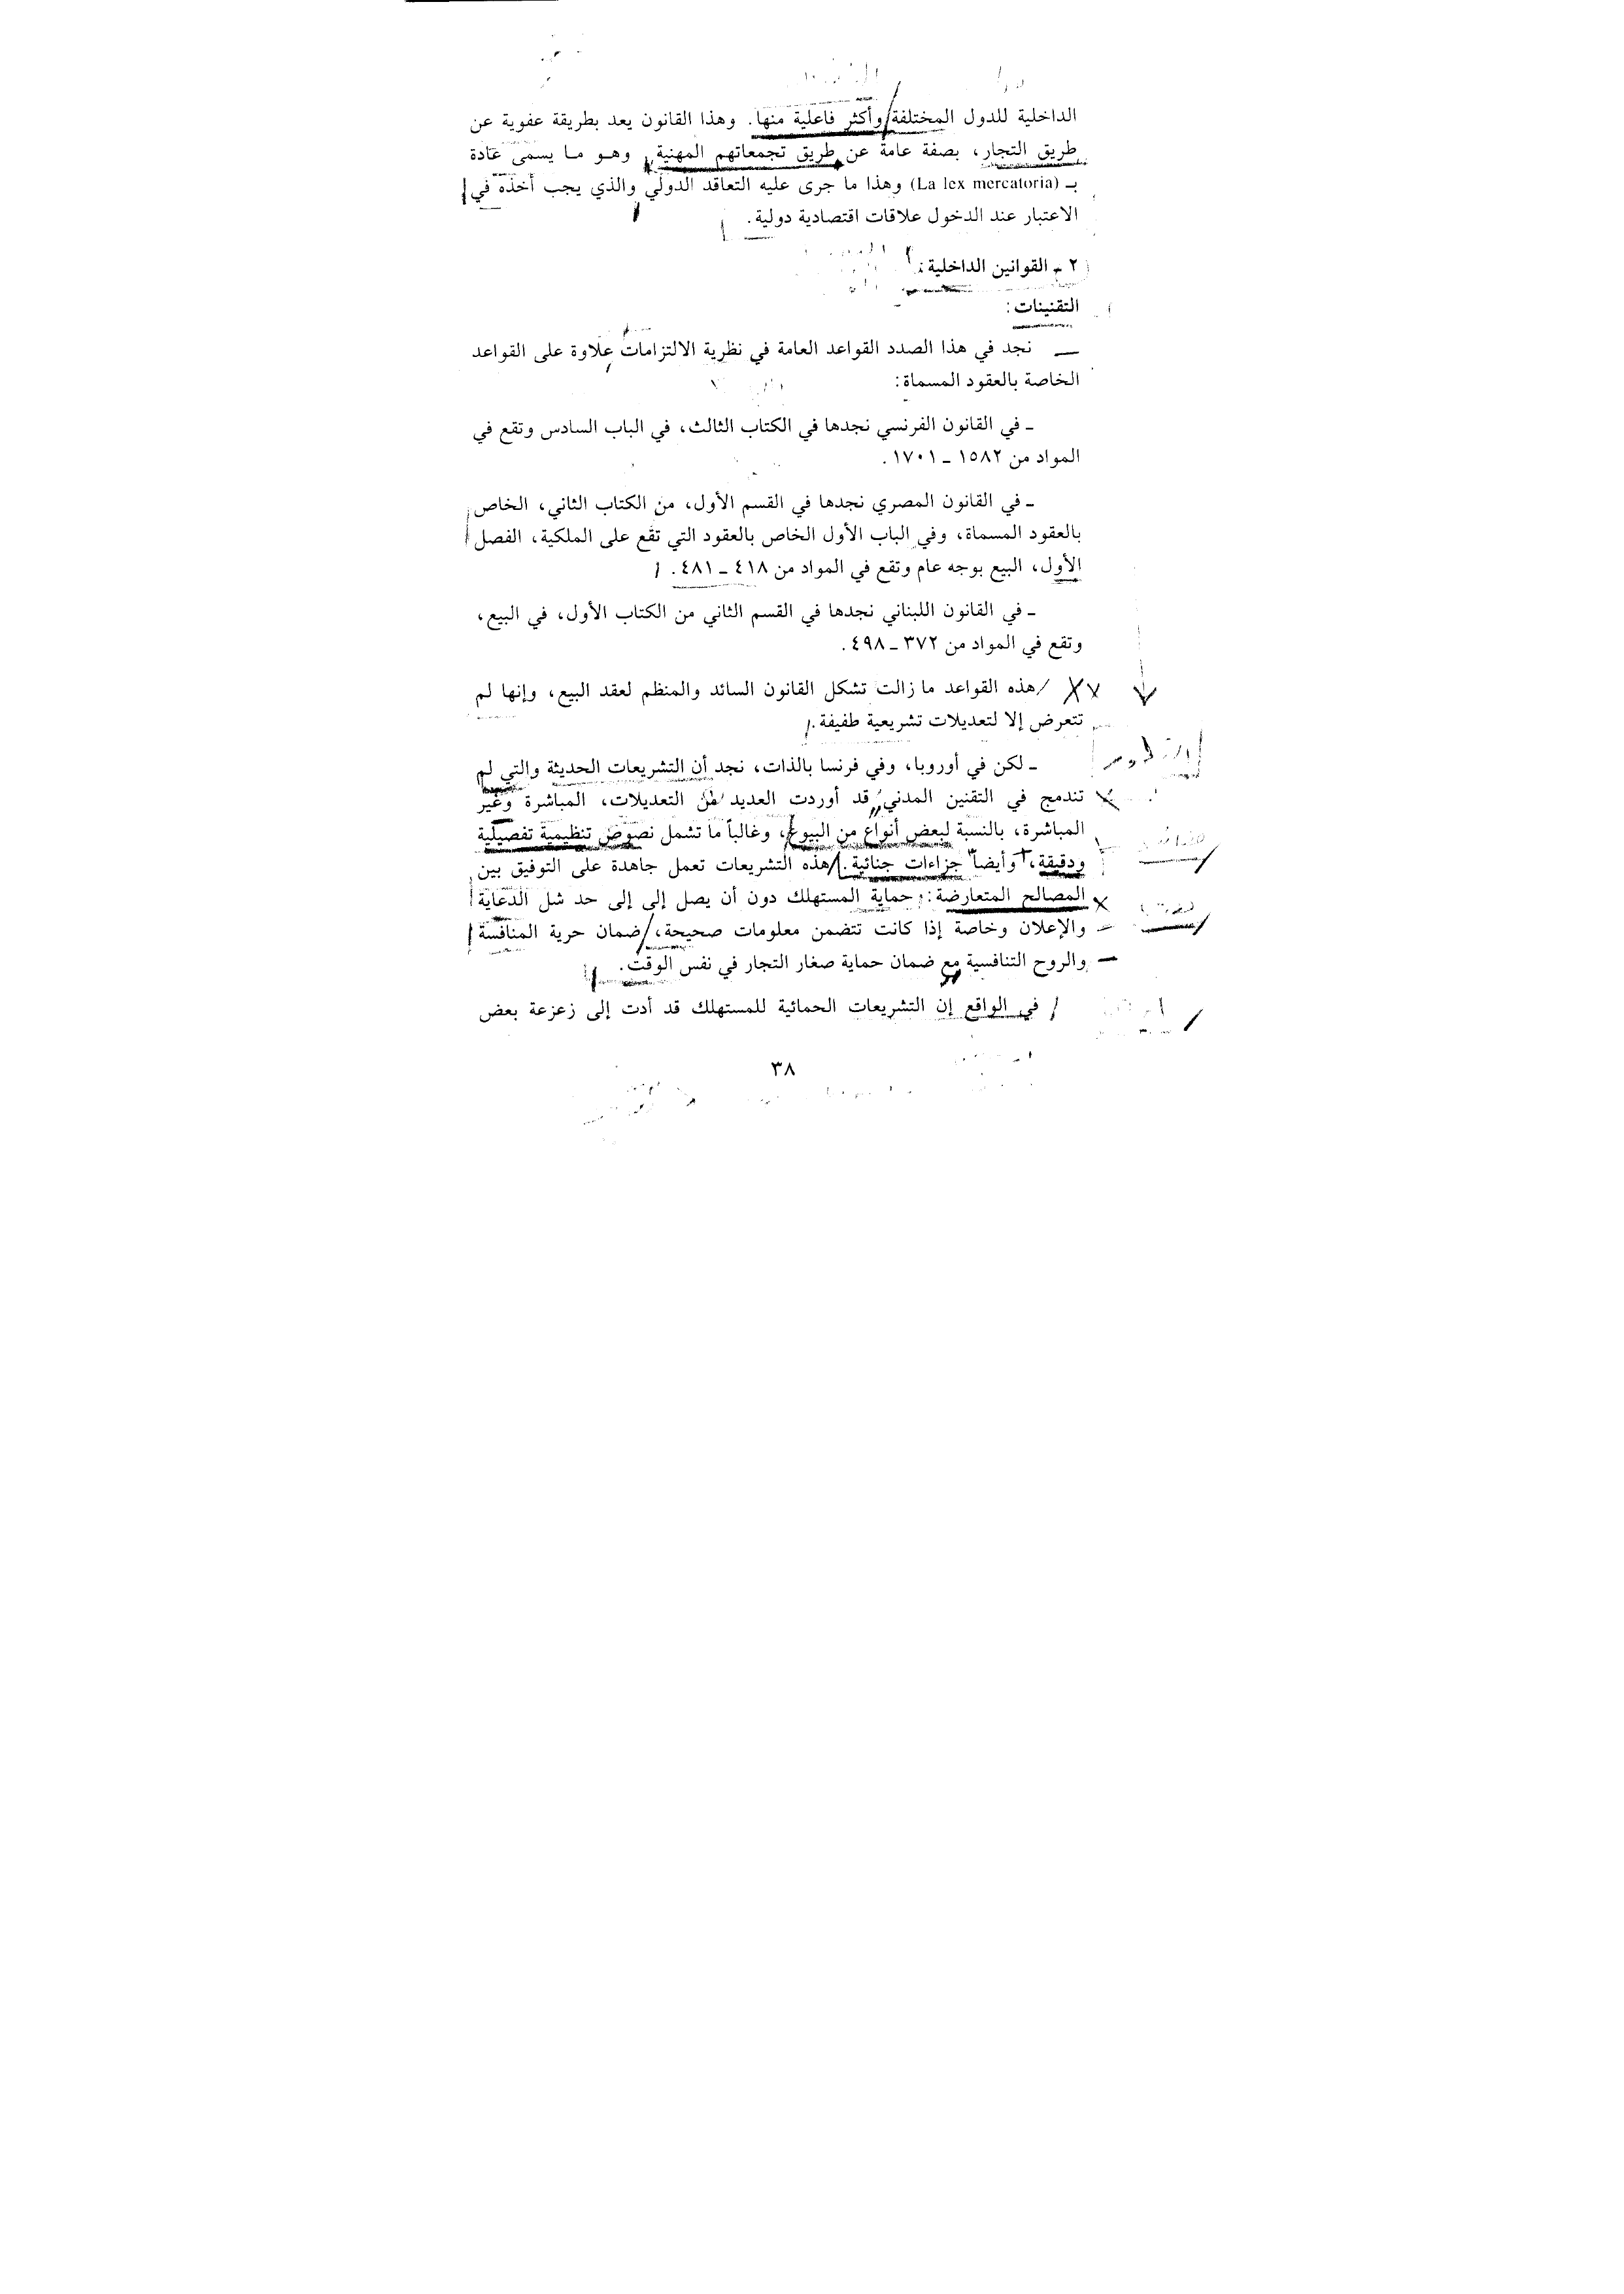 الداخلية للدول المختلفة وأكثر فاعلية منها. وهذا القانون يعد بطريقة عفوية عن
طريق التجار، بصفة عامة عن طريق تجمعاتهم المهنية، وهو ما يسمى عادة
بـ (La lex mercatoria) وهذا ما جرى عليه التعاقد الدولي والذي يجب أخذه في
الاعتبار عند الدخول علاقات اقتصادية دولية.
٢ - القوانين الداخلية:
التقنينات:
— نجد في هذا الصدد القواعد العامة في نظرية الالتزامات علاوة على القواعد
الخاصة بالعقود المسماة:
- في القانون الفرنسي نجدها في الكتاب الثالث، في الباب السادس وتقع في
المواد من ١٥٨٢ - ١٧٠١.
- في القانون المصري نجدها في القسم الأول، من الكتاب الثاني، الخاص
بالعقود المسماة، وفي الباب الأول الخاص بالعقود التي تقع على الملكية، الفصل
الأول، البيع بوجه عام وتقع في المواد من ٤١٨ - ٤٨١.
- في القانون اللبناني نجدها في القسم الثاني من الكتاب الأول، في البيع،
وتقع في المواد من ٣٧٢ - ٤٩٨.
هذه القواعد ما زالت تشكل القانون السائد والمنظم لعقد البيع، وإنها لم
تتعرض إلا لتعديلات تشريعية طفيفة.
- لكن في أوروبا، وفي فرنسا بالذات، نجد أن التشريعات الحديثة والتي لم
تندمج في التقنين المدني قد أوردت العديد من التعديلات، المباشرة وغير
المباشرة، بالنسبة لبعض أنواع من البيوع، وغالباً ما تشمل نصوص تنظيمية تفصيلية
ودقيقة، وأيضاً جزاءات جنائية. هذه التشريعات تعمل جاهدة على التوفيق بين
المصالح المتعارضة: حماية المستهلك دون أن يصل إلى إلى حد شل الدعاية
والإعلان وخاصة إذا كانت تتضمن معلومات صحيحة، ضمان حرية المنافسة
والروح التنافسية مع ضمان حماية صغار التجار في نفس الوقت.
في الواقع إن التشريعات الحمائية للمستهلك قد أدت إلى زعزعة بعض
٣٨